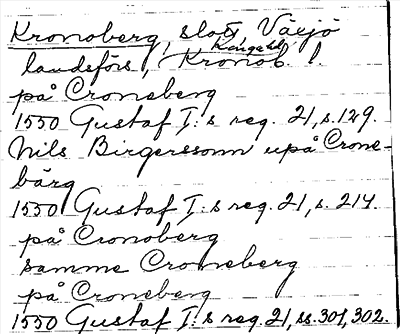 Kronoberg, slott, Växjö
landsförs, Kronob. l.
på Croneberg
1550 Gustaf I:s reg. 21, s. 129.
Nils Birgerssonn upå Crone-
bärg
1550 Gustaf I:s reg. 21, s. 214.
på Cronoberg
samme Croneberg
på Croneberg
1550 Gustaf I:s reg. 21, ss. 301, 302.